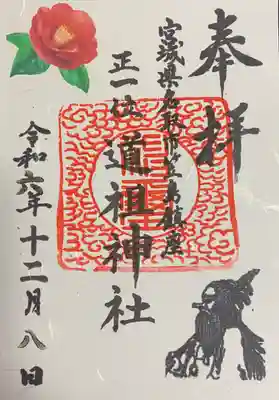 奉拝
宮城県名取市笠島鎮座
正一位 道祖神社
令和六年十二月八日